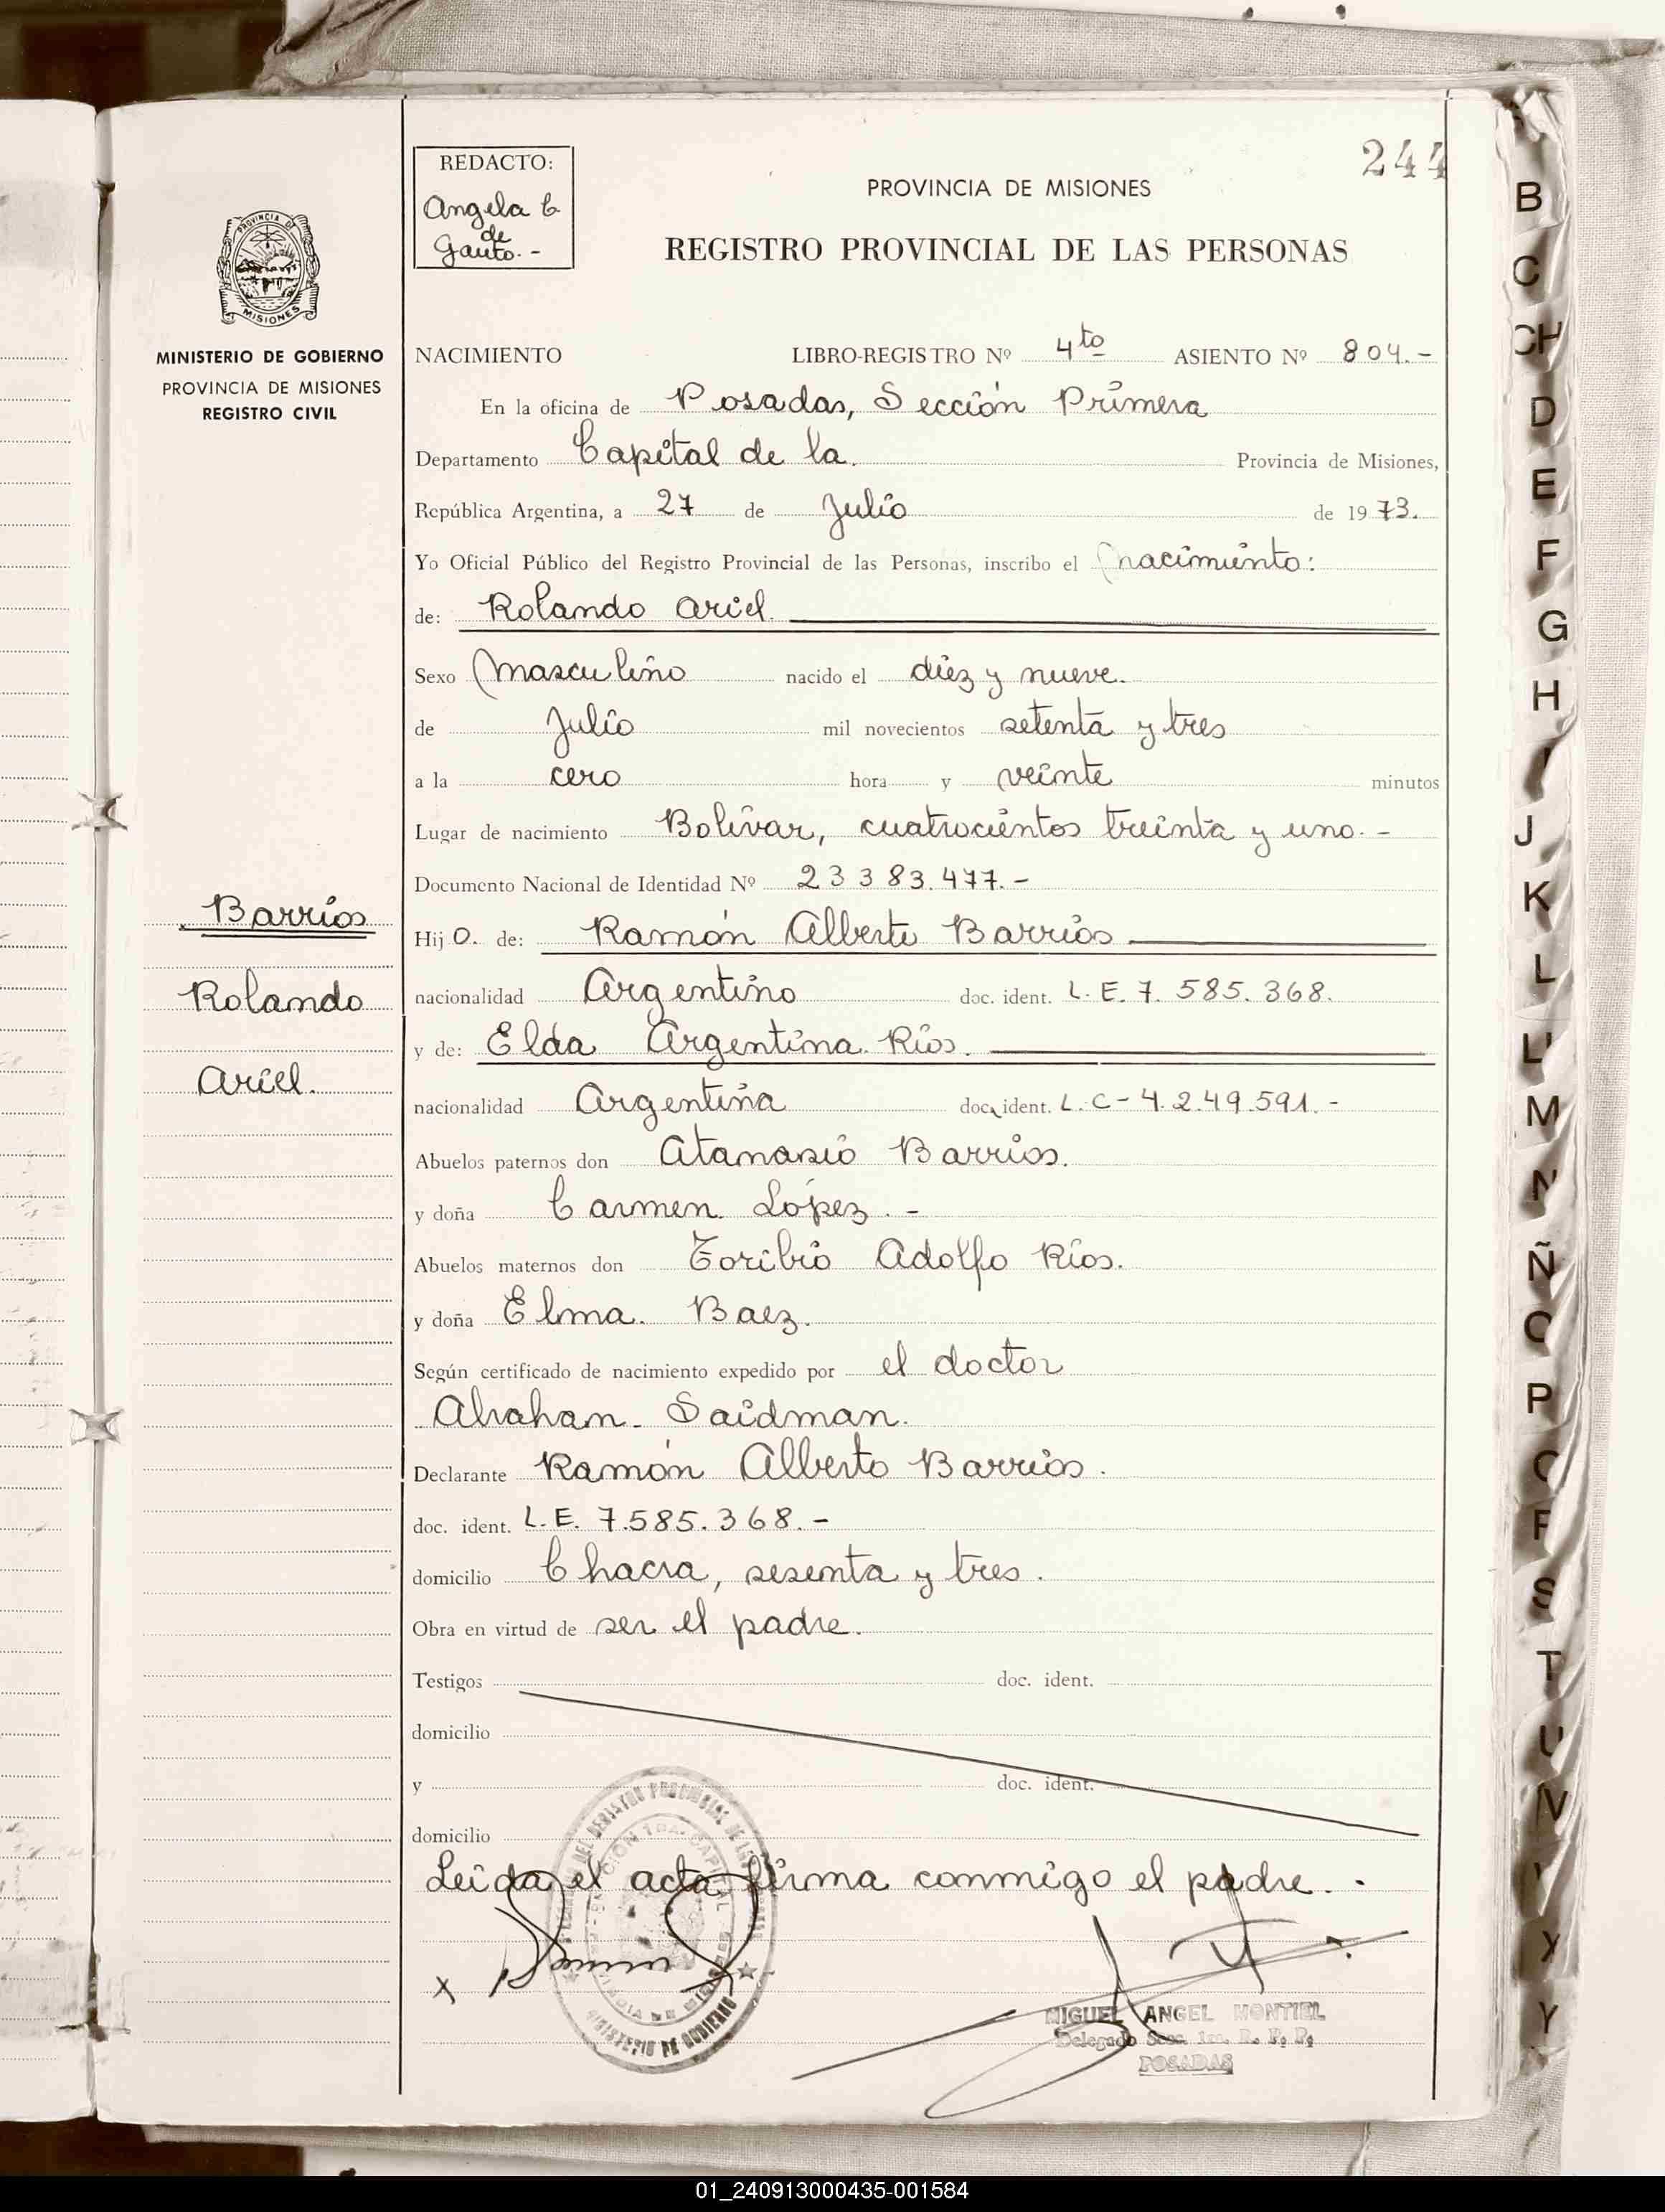 244
REDACTO:
Angela C.
de
Gauto. -
PROVINCIA DE MISIONES
REGISTRO PROVINCIAL DE LAS PERSONAS
PROVINCIA DE
MISIONES
MINISTERIO DE GOBIERNO
PROVINCIA DE MISIONES
REGISTRO CIVIL
NACIMIENTO LIBRO-REGISTRO Nº 4to ASIENTO Nº 804.-
En la oficina de Posadas, Sección Primera
Departamento Capital de la. Provincia de Misiones,
República Argentina, a 27 de Julio de 1973.
Yo Oficial Público del Registro Provincial de las Personas, inscribo el Nacimiento:
de: Rolando Ariel.
Sexo Masculino nacido el diez y nueve.
de Julio mil novecientos setenta y tres
a la cero hora y veinte minutos
Lugar de nacimiento Bolívar, cuatrocientos treinta y uno. -
Documento Nacional de Identidad Nº 23383.477.-
Barrios
Rolando
Ariel.
Hij o. de: Ramón Alberto Barrios
nacionalidad Argentino doc. ident. L.E. 7.585.368.
y de: Elda Argentina Ríos.
nacionalidad Argentina doc. ident. L.C-4.249.591.-
Abuelos paternos don Atanasio Barrios.
y doña Carmen López. -
Abuelos maternos don Toribio Adolfo Ríos.
y doña Elma. Baez.
Según certificado de nacimiento expedido por el doctor
Abraham Saidman.
Declarante Ramón Alberto Barrios.
doc. ident. L.E. 7.585.368.-
domicilio Chacra, sesenta y tres.
Obra en virtud de ser el padre.
Testigos doc. ident.
domicilio
y doc. ident.
domicilio
Leida el acta firma conmigo el padre. -
x
MINISTERIO DE GOBIERNO
MIGUEL ANGEL MONTIEL
Delegado Secc. 1ra. R. P. P.
POSADAS
B
C
CH
D
E
F
G
H
I
J
K
L
LL
M
N
Ñ
O
P
Q
R
S
T
U
V
X
Y
01_240913000435-001584